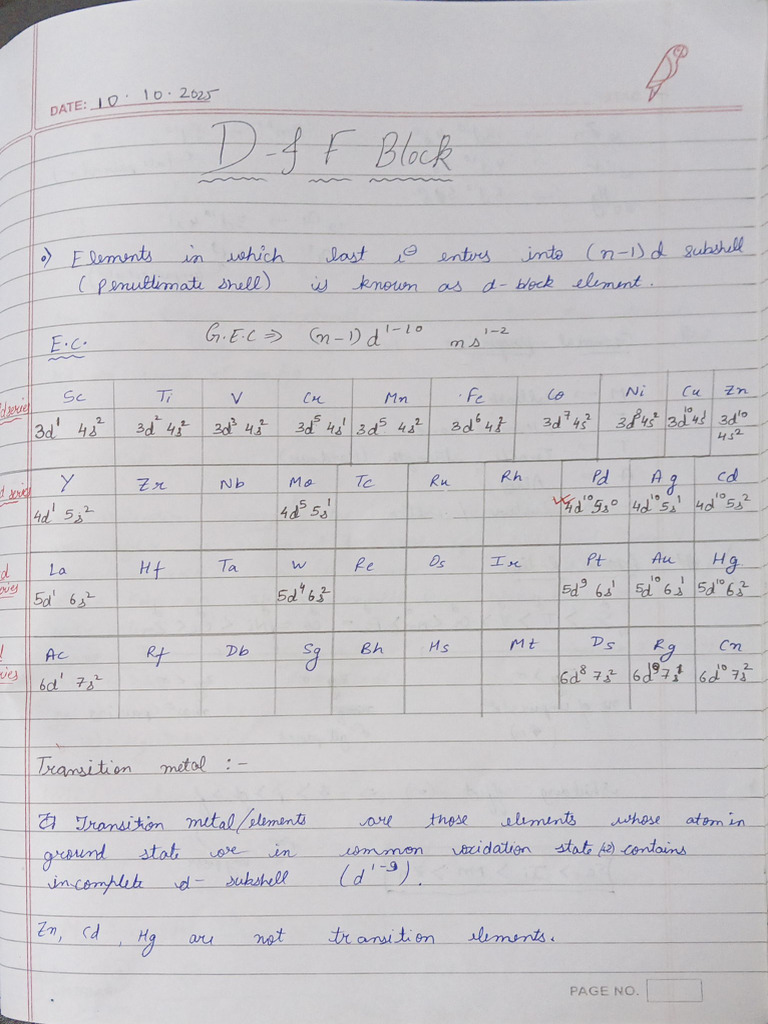 DATE: 10 · 10 · 2025
D-f F Block
Elements in which last e⊖ enters into (n-1) d subshell
(penultimate shell) is known as d-block element.
E.C. G.E.C ⇒ (n-1) d¹⁻¹⁰ ns¹⁻²
Sc Ti V Cr Mn Fe Co Ni Cu Zn
series 3d¹ 4s² 3d² 4s² 3d³ 4s² 3d⁵ 4s¹ 3d⁵ 4s² 3d⁶ 4s² 3d⁷ 4s² 3d⁸ 4s² 3d¹⁰ 4s¹ 3d¹⁰ 4s²
Y Zr Nb Mo Tc Ru Rh Pd Ag Cd
series 4d¹ 5s² 4d⁵ 5s¹ 4d¹⁰ 5s⁰ 4d¹⁰ 5s¹ 4d¹⁰ 5s²
La Hf Ta W Re Os Ir Pt Au Hg
5d¹ 6s² 5d⁴ 6s² 5d⁹ 6s¹ 5d¹⁰ 6s¹ 5d¹⁰ 6s²
Ac Rf Db Sg Bh Hs Mt Ds Rg Cn
6d¹ 7s² 6d⁸ 7s² 6d⁹ 7s² 6d¹⁰ 7s²
Transition metal :-
Transition metal/elements are those elements whose atom in
ground state or in common oxidation state (+2) contains
incomplete d- subshell (d¹⁻⁹).
Zn, Cd, Hg are not transition elements.
PAGE NO.